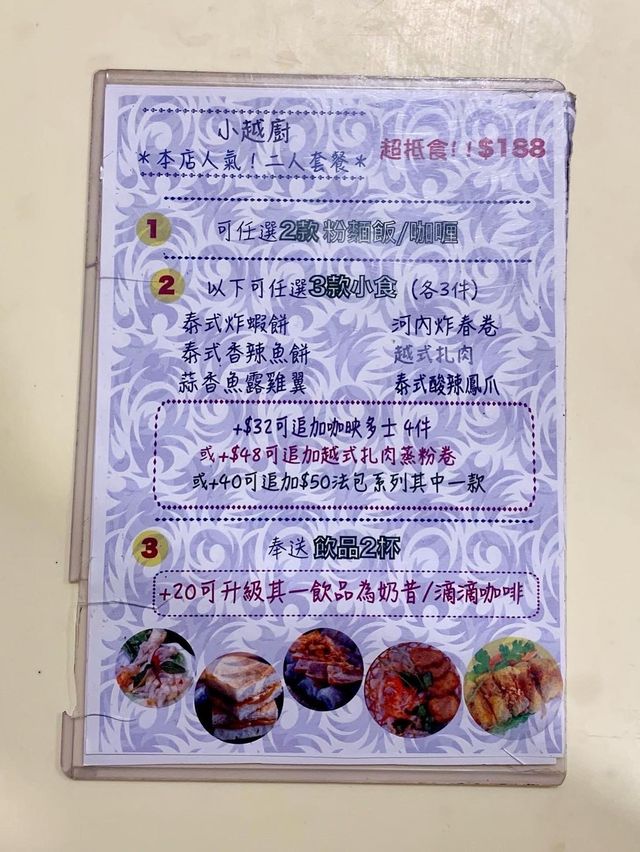 小越廚
*本店人氣！二人套餐*
超抵食!!$188
1 可任選2款 粉麵飯/咖喱
2 以下可任選3款小食 (各3件)
泰式炸蝦餅 河內炸春卷
泰式香辣魚餅 越式扎肉
蒜香魚露雞翼 泰式酸辣鳳爪
+$32可追加咖映多士 4件
或+$48可追加越式扎肉蒸粉卷
或+40可追加$50法包系列其中一款
3 奉送 飲品2杯
+20可升級其一飲品為奶昔/滴滴咖啡